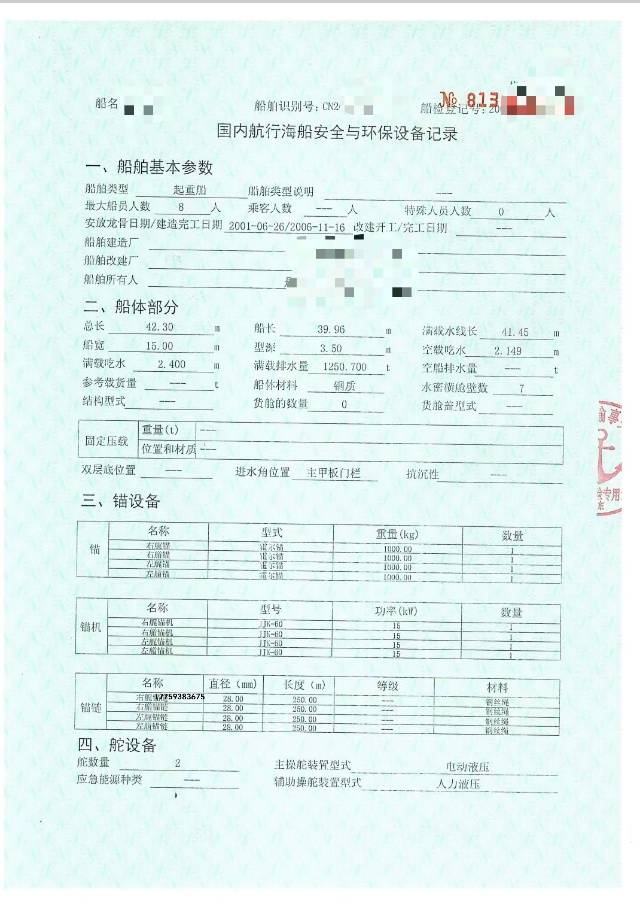 船名
船舶识别号：CN20
№ 813
船检登记号：20
国内航行海船安全与环保设备记录
一、船舶基本参数
船舶类型 起重船 船舶类型说明 ---
最大船员人数 8 人 乘客人数 --- 人 特殊人员人数 0 人
安放龙骨日期/建造完工日期 2001-06-26/2006-11-16 改建开工/完工日期 ---
船舶建造厂
船舶改建厂
船舶所有人
二、船体部分
总长 42.30 m 船长 39.96 m 满载水线长 41.45 m
船宽 15.00 m 型深 3.50 m 空载吃水 2.149 m
满载吃水 2.400 m 满载排水量 1250.700 t 空船排水量 --- t
参考载货量 --- t 船体材料 钢质 水密横舱壁数 7
结构型式 --- 货舱的数量 0 货舱盖型式 ---
固定压载 重量(t) ---
位置和材质 ---
双层底位置 --- 进水角位置 主甲板门栏 抗沉性 ---
三、锚设备
锚 名称 型式 重量(kg) 数量
右艏锚 霍尔锚 1000.00 1
右艏锚 霍尔锚 1000.00 1
左艉锚 霍尔锚 1000.00 1
左艏锚 霍尔锚 1000.00 1
锚机 名称 型号 功率(kW) 数量
右艉锚机 JJK-60 15 1
右艏锚机 JJK-60 15 1
左艉锚机 JJK-60 15 1
左艏锚机 JJK-60 15 1
锚链 名称 直径 (mm) 长度 (m) 等级 材料
17759383675
28.00 250.00 --- 钢丝绳
右艏锚链 28.00 250.00 --- 钢丝绳
左艉锚链 28.00 250.00 --- 钢丝绳
左艏锚链 28.00 250.00 --- 钢丝绳
四、舵设备
舵数量 2 主操舵装置型式 电动液压
应急能源种类 --- 辅助操舵装置型式 人力液压